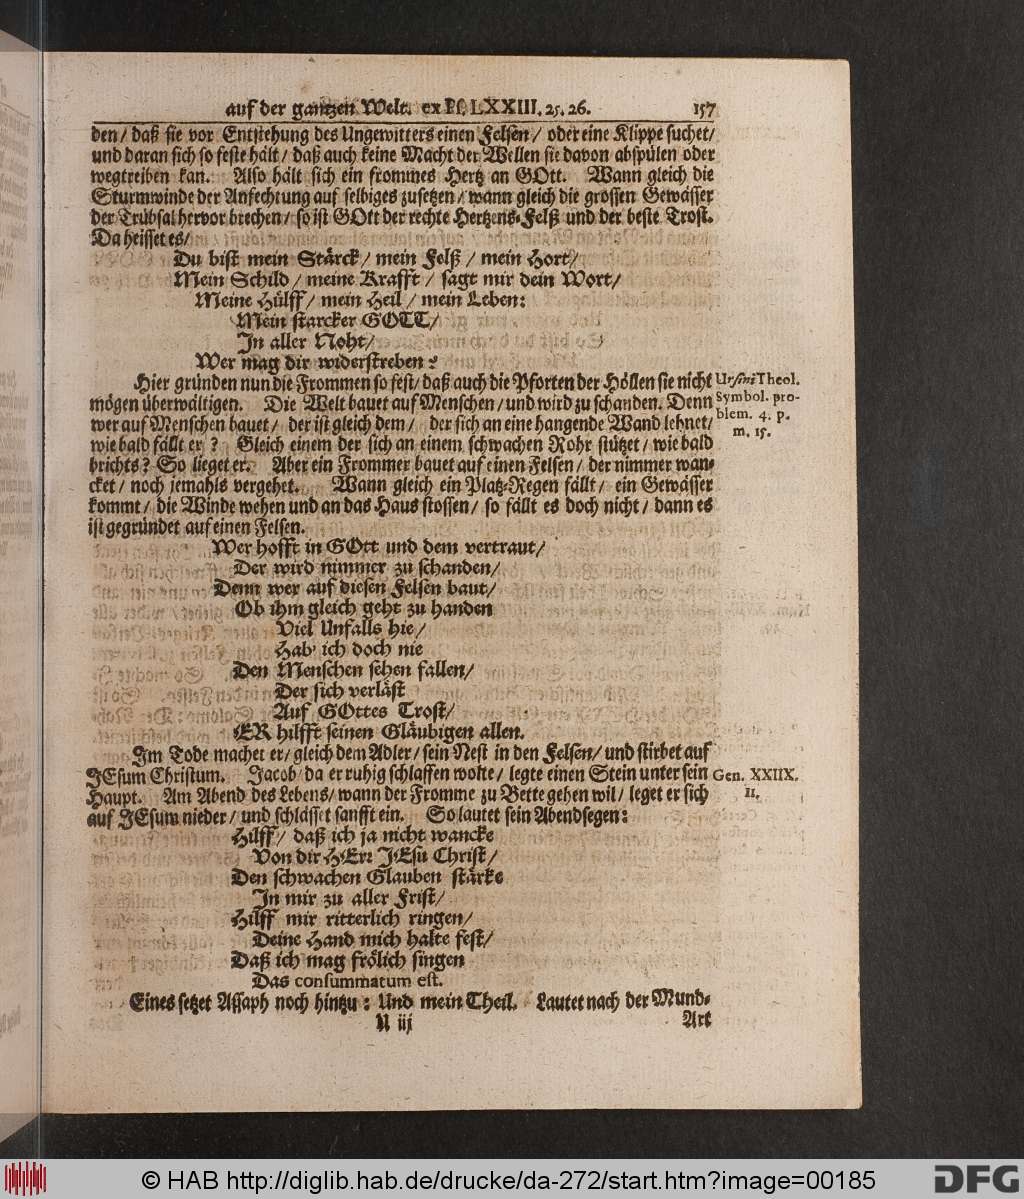 auf der gantzen Welt. ex Ps. LXXIII. 25. 26. 157
den/ daß sie vor Entstehung des Ungewitters einen Felsen/ oder eine Klippe suchet/
und daran sich so feste hält/ daß auch keine Macht der Wellen sie davon abspülen oder
wegtreiben kan. Also hält sich ein frommes Hertz an GOtt. Wann gleich die
Sturmwinde der Anfechtung auf selbiges zusetzen/ wann gleich die grossen Gewässer
der Trübsal hervor brechen/ so ist GOtt der rechte Hertzens-Felß und der beste Trost.
Da heisset es/
Du bist mein Stärck/ mein Felß/ mein Hort/
Mein Schild/ meine Krafft/ sagt mir dein Wort/
Meine Hülff/ mein Heil/ mein Leben:
Mein starcker GOTT/
In aller Noht/
Wer mag dir widerstreben?
Hier gründen nun die Frommen so fest/ daß auch die Pforten der Höllen sie nicht
mögen überwältigen. Die Welt bauet auf Menschen/ und wird zu schanden. Denn
wer auf Menschen bauet/ der ist gleich dem/ der sich an eine hangende Wand lehnet/
wie bald fällt er? Gleich einem der sich an einem schwachen Rohr stützet/ wie bald
brichts? So lieget er. Aber ein Frommer bauet auf einen Felsen/ der nimmer wan-
cket/ noch jemahls vergehet. Wann gleich ein Platz-Regen fällt/ ein Gewässer
kommt/ die Winde wehen und an das Haus stossen/ so fällt es doch nicht/ dann es
ist gegründet auf einen Felsen.
Ursini Theol.
Symbol. pro-
blem. 4. p.
m. 15.
Wer hofft in GOtt und dem vertraut/
Der wird nimmer zu schanden/
Denn wer auf diesen Felsen baut/
Ob ihm gleich geht zu handen
Viel Unfalls hie/
Hab' ich doch nie
Den Menschen sehen fallen/
Der sich verläst
Auf GOttes Trost/
ER hilfft seinen Gläubigen allen.
Im Tode machet er/ gleich dem Adler/ sein Nest in den Felsen/ und stirbet auf
JEsum Christum. Jacob da er ruhig schlaffen wolte/ legte einen Stein unter sein
Haupt. Am Abend des Lebens/ wann der Fromme zu Bette gehen wil/ leget er sich
auf JEsum nieder/ und schläffet sanfft ein. So lautet sein Abendsegen:
Gen. XXIIX.
11.
Hilff/ daß ich ja nicht wancke
Von dir HErr JEsu Christ/
Den schwachen Glauben stärke
In mir zu aller Frist/
Hilff mir ritterlich ringen/
Deine Hand mich halte fest/
Daß ich mag frölich singen
Das consummatum est.
Eines setzet Assaph noch hintzu: Und mein Theil. Lautet nach der Mund-
U iij Art
© HAB http://diglib.hab.de/drucke/da-272/start.htm?image=00185
DFG